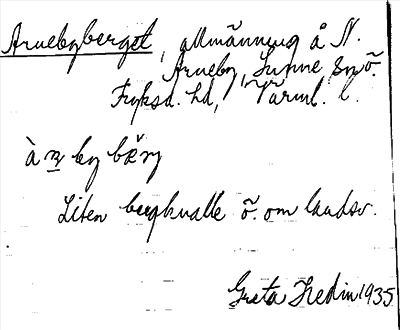 Arnebyberget, allmänning å N.
Arneby, Sunne sn ö.
Fryksd. hd, Värml. l.
à n by bærj
Liten bergknalle ö. om landsv.
Greta Hedin 1935